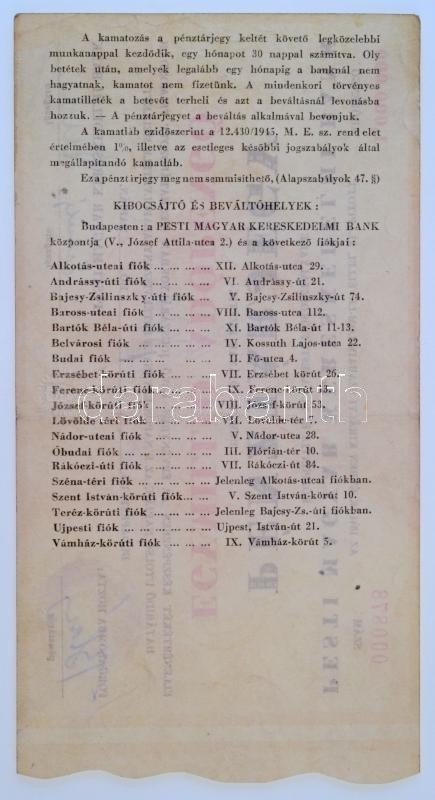 A kamatozás a pénztárjegy keltét követő legközelebbi
munkanappal kezdődik, egy hónapot 30 nappal számítva. Oly
betétek után, amelyek legalább egy hónapig a banknál nem
hagyatnak, kamatot nem fizetünk. A mindenkori törvényes
kamatilleték a betevőt terheli és azt a beváltásnál levonásba
hozzuk. — A pénztárjegyet a beváltás alkalmával bevonjuk.
A kamatláb ezidőszerint a 12.430/1945. M. E. sz. rendelet
értelmében 1%, illetve az esetleges későbbi jogszabályok által
megállapítandó kamatláb.
Ez a pénztárjegy meg nem semmisíthető, (Alapszabályok 47. §)
KIBOCSÁJTÓ ÉS BEVÁLTÓHELYEK :
Budapesten: a PESTI MAGYAR KERESKEDELMI BANK
központja (V., József Attila-utca 2.) és a következő fiókjai :
Alkotás-utcai fiók ... ... ... ... XII. Alkotás-utca 29.
Andrássy-úti fiók ... ... ... ... VI. Andrássy-út 21.
Bajcsy-Zsilinszky-úti fiók ... V. Bajcsy-Zsilinszky-út 74.
Baross-utcai fiók ... ... ... ... VIII. Baross-utca 112.
Bartók Béla-úti fiók ... ... ... XI. Bartók Béla-út 11-13.
Belvárosi fiók ... ... ... ... IV. Kossuth Lajos-utca 22.
Budai fiók ... ... ... ... II. Fő-utca 4.
Erzsébet-körúti fiók ... ... ... VII. Erzsébet körút 26.
Ferenc-körúti fiók ... ... ... IX. Ferenc-körút 13.
József-körúti fiók ... ... ... VIII. József-körút 53.
Lövölde-téri fiók ... ... ... VII. Lövölde-tér 7.
Nádor-utcai fiók ... ... ... ... V. Nádor-utca 28.
Óbudai fiók ... ... ... ... III. Flórián-tér 10.
Rákóczi-úti fiók ... ... ... ... VII. Rákóczi-út 84.
Széna-téri fiók ... ... ... ... Jelenleg Alkotás-utcai fiókban.
Szent István-körúti fiók... ... V. Szent István-körút 10.
Teréz-körúti fiók ... ... ... ... Jelenleg Bajcsy-Zs.-úti fiókban.
Ujpesti fiók ... ... ... ... ... Ujpest, István-út 21.
Vámház-körúti fiók ... ... ... IX. Vámház-körút 5.
darabanth
000878